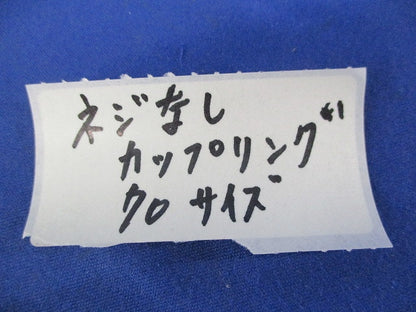 ネジなし
カップリング
70サイズ